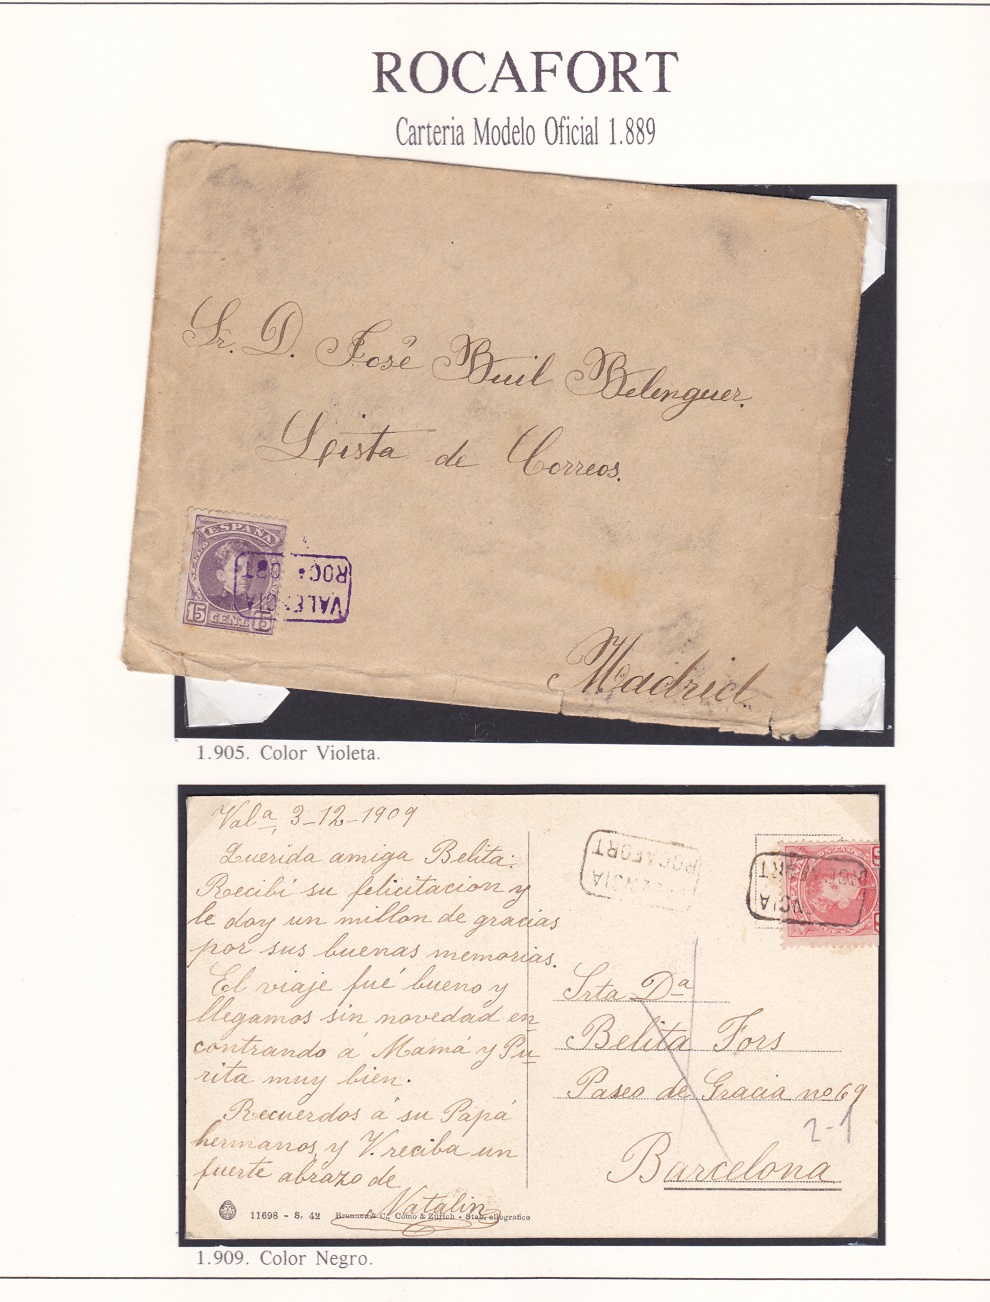 ROCAFORT
Carteria Modelo Oficial 1.889
Sr. D. José Buil Belenguer.
Lista de Correos.
ESPAÑA
15 CENT. 15
ROC RT
VALENCIA
Madrid.
1.905. Color Violeta.
Valª, 3-12-1909
Querida amiga Belita:
Recibi su felicitacion y
le doy un millon de gracias
por sus buenas memorias.
El viaje fué bueno y
llegamos sin novedad en
contrando á Mamá y Pu-
rita muy bien.
Recuerdos á su Papá
hermanos, y V. reciba un
fuerte abrazo de
Natalin
ROCAFORT
LENCIA
RT
NCIA
Srta Dª
Belita Fors
Paseo de Gracia nº 69
2-1
Barcelona
11698 - S. 42 Brunner & C., Como & Zürich - Stab. eliografico
1.909. Color Negro.